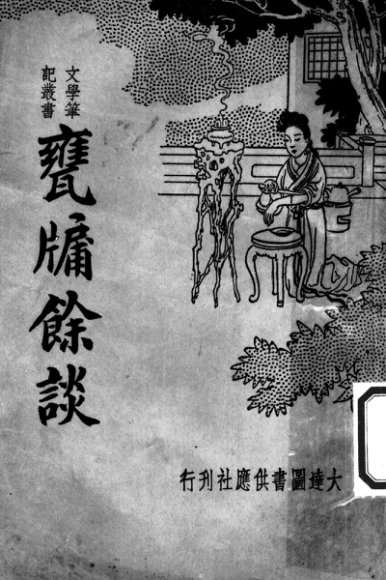 文學筆
記叢書
甕牖餘談
大達圖書供應社刊行